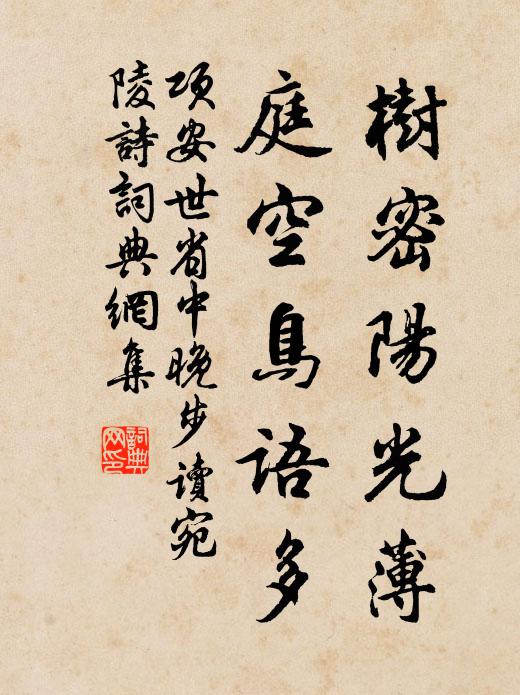 樹密陽光薄
庭空鳥語多
項安世省中晚步讀宛
陵詩詞典網集
詞典
网印